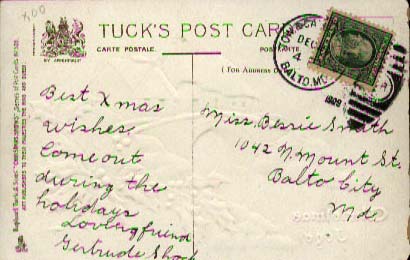 TUCK'S POST CARD
CARTE POSTALE.
POSTKARTE.
(FOR ADDRESS O
BY APPOINTMENT
DEC
4
BALTO. MD.
1909
Best Xmas
wishes.
Come out
during the
holidays
Loving friend
Gertrude
Miss Bessie Smith
1042 N. Mount St.
Balto City
Md.